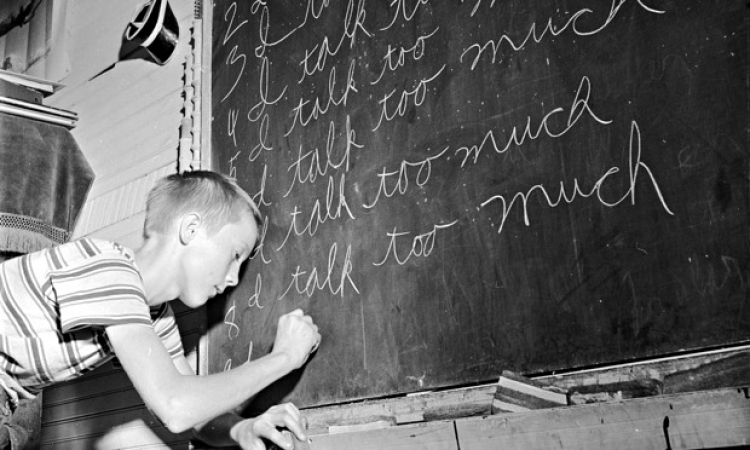 2 I talk
3 I talk too
4 I talk too
5 I talk too much
I talk too much
8 I talk too much